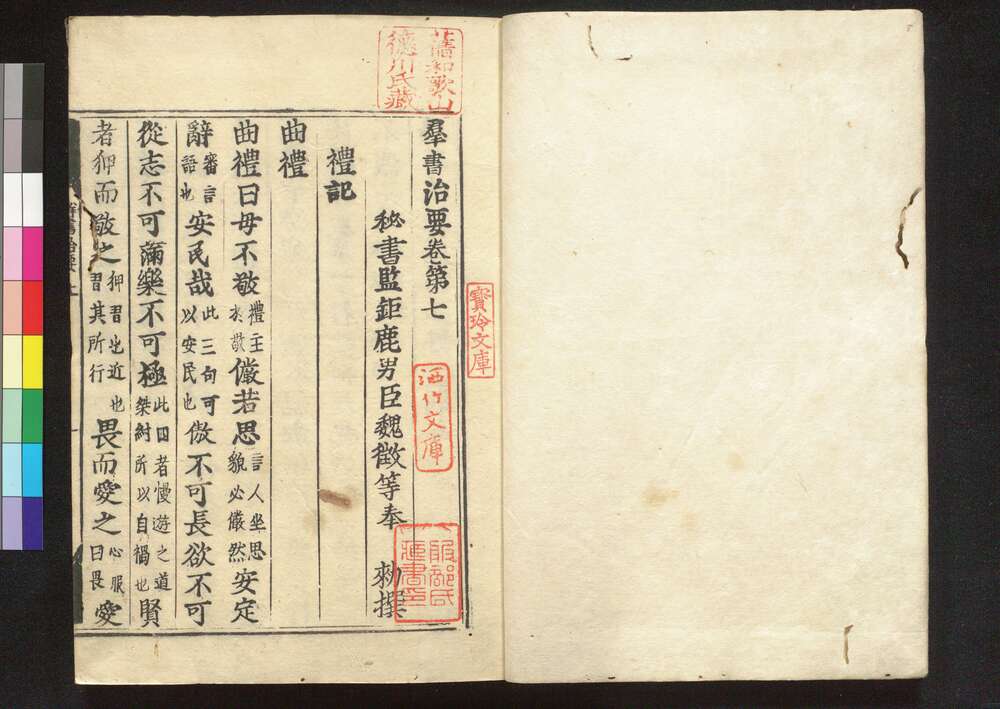 羣書治要卷第七
秘書監鉅鹿男臣魏徵等奉 勑撰
禮記
曲禮
曲禮曰毋不敬禮主於敬儼若思言人坐思貌必儼然安定
辭審言語也安民哉此三句可以安民也傲不可長欲不可
從志不可滿樂不可極此四者慢遊之道桀紂所以自禍也賢
者狎而敬之狎習也近也習其所行畏而愛之心服曰畏愛
舊和歌山
德川氏藏
寶玲文庫
洒竹文庫
服部氏